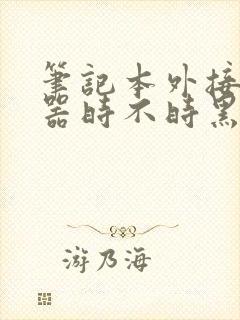 筆記本外接
器時不時黑
游乃海